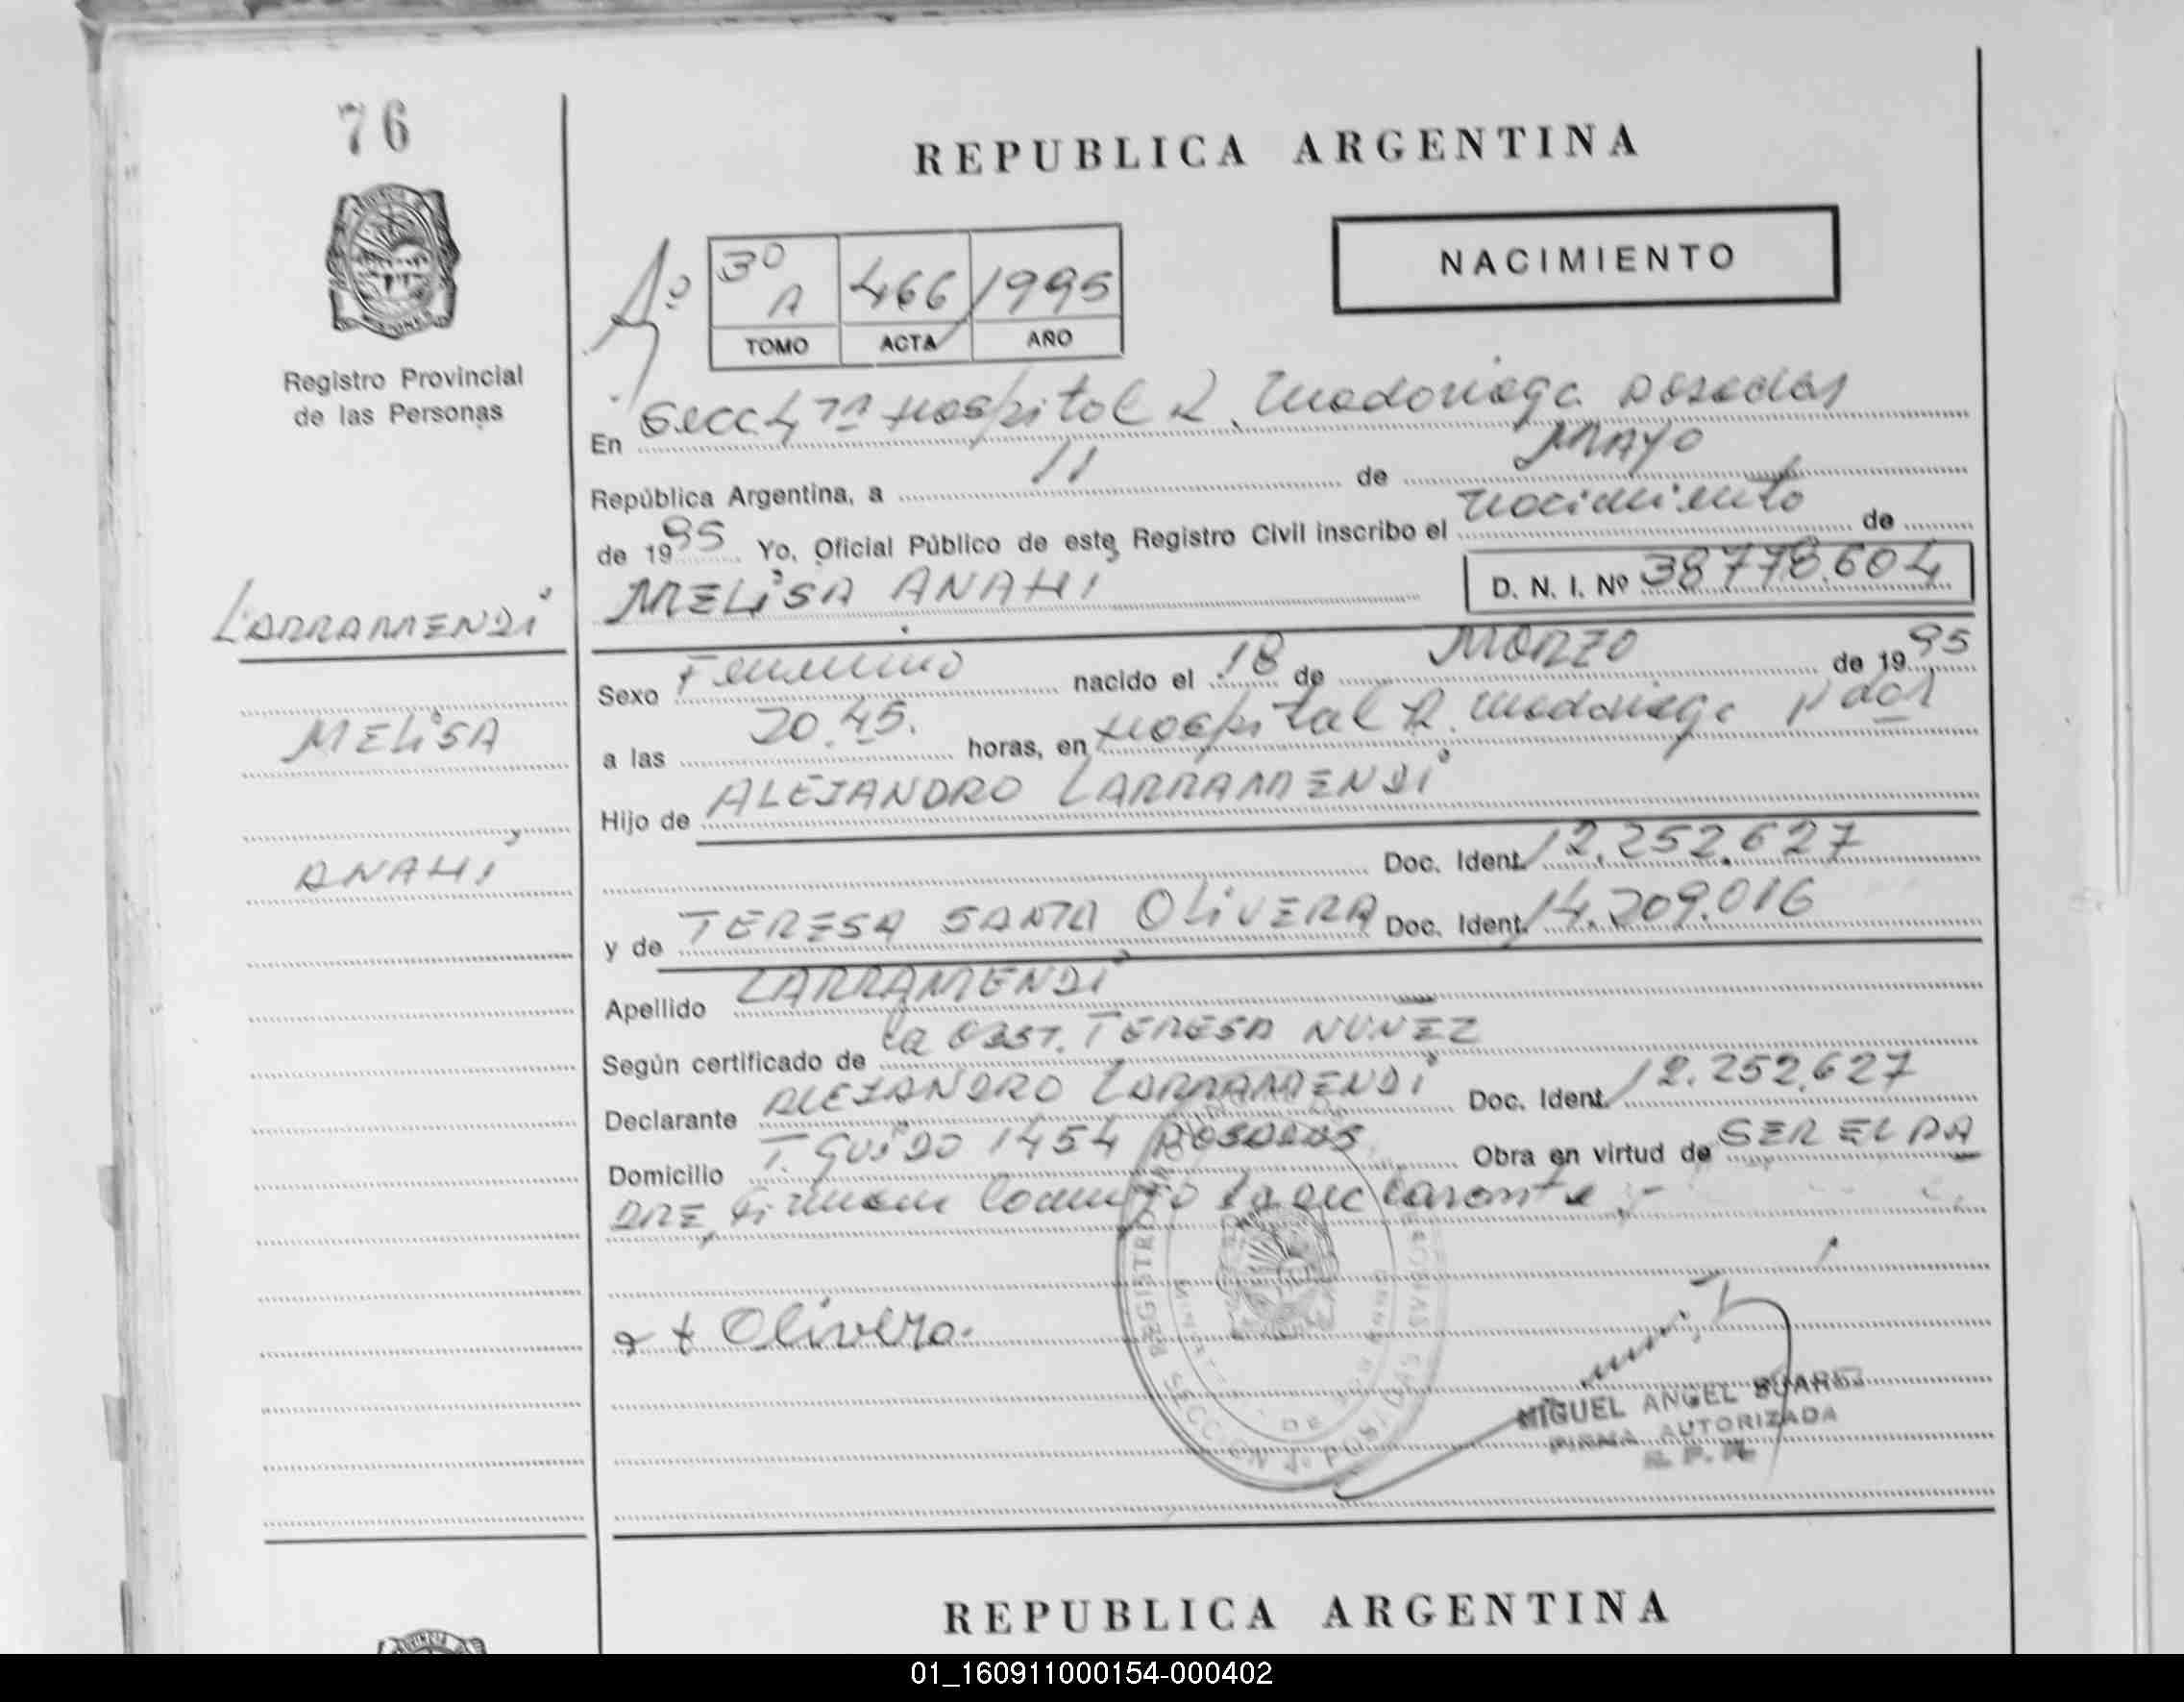 76
REPUBLICA ARGENTINA
NACIMIENTO
3º A 466 1995
TOMO ACTA AÑO
Registro Provincial
de las Personas
En Secc 4 7ª Hospital R. Madariaga Posadas
República Argentina, a 11 de MAYO
de 1995 Yo, Oficial Público de este Registro Civil inscribo el nacimiento de
MELISA ANAHI D. N. I. Nº 38778.604
LARRAMENDI
MELISA
ANAHI
Sexo Femenino nacido el 18 de MARZO de 1995
a las 20.45. horas, en Hospital R. Madariaga
Hijo de ALEJANDRO LARRAMENDI
Doc. Ident. 12.252.627
y de TERESA SANTA OLIVERA Doc. Ident. 14.209.016
Apellido LARRAMENDI
Según certificado de la OBST. TERESA NUÑEZ
Declarante ALEJANDRO LARRAMENDI Doc. Ident. 12.252.627
Domicilio T. GUIDO 1454 POSADAS Obra en virtud de SER EL PA
DRE, firman conmigo la declarante.-
Olivera.
MIGUEL ANGEL SUAREZ
FIRMA AUTORIZADA
R. P. P.
REPUBLICA ARGENTINA
01_160911000154-000402